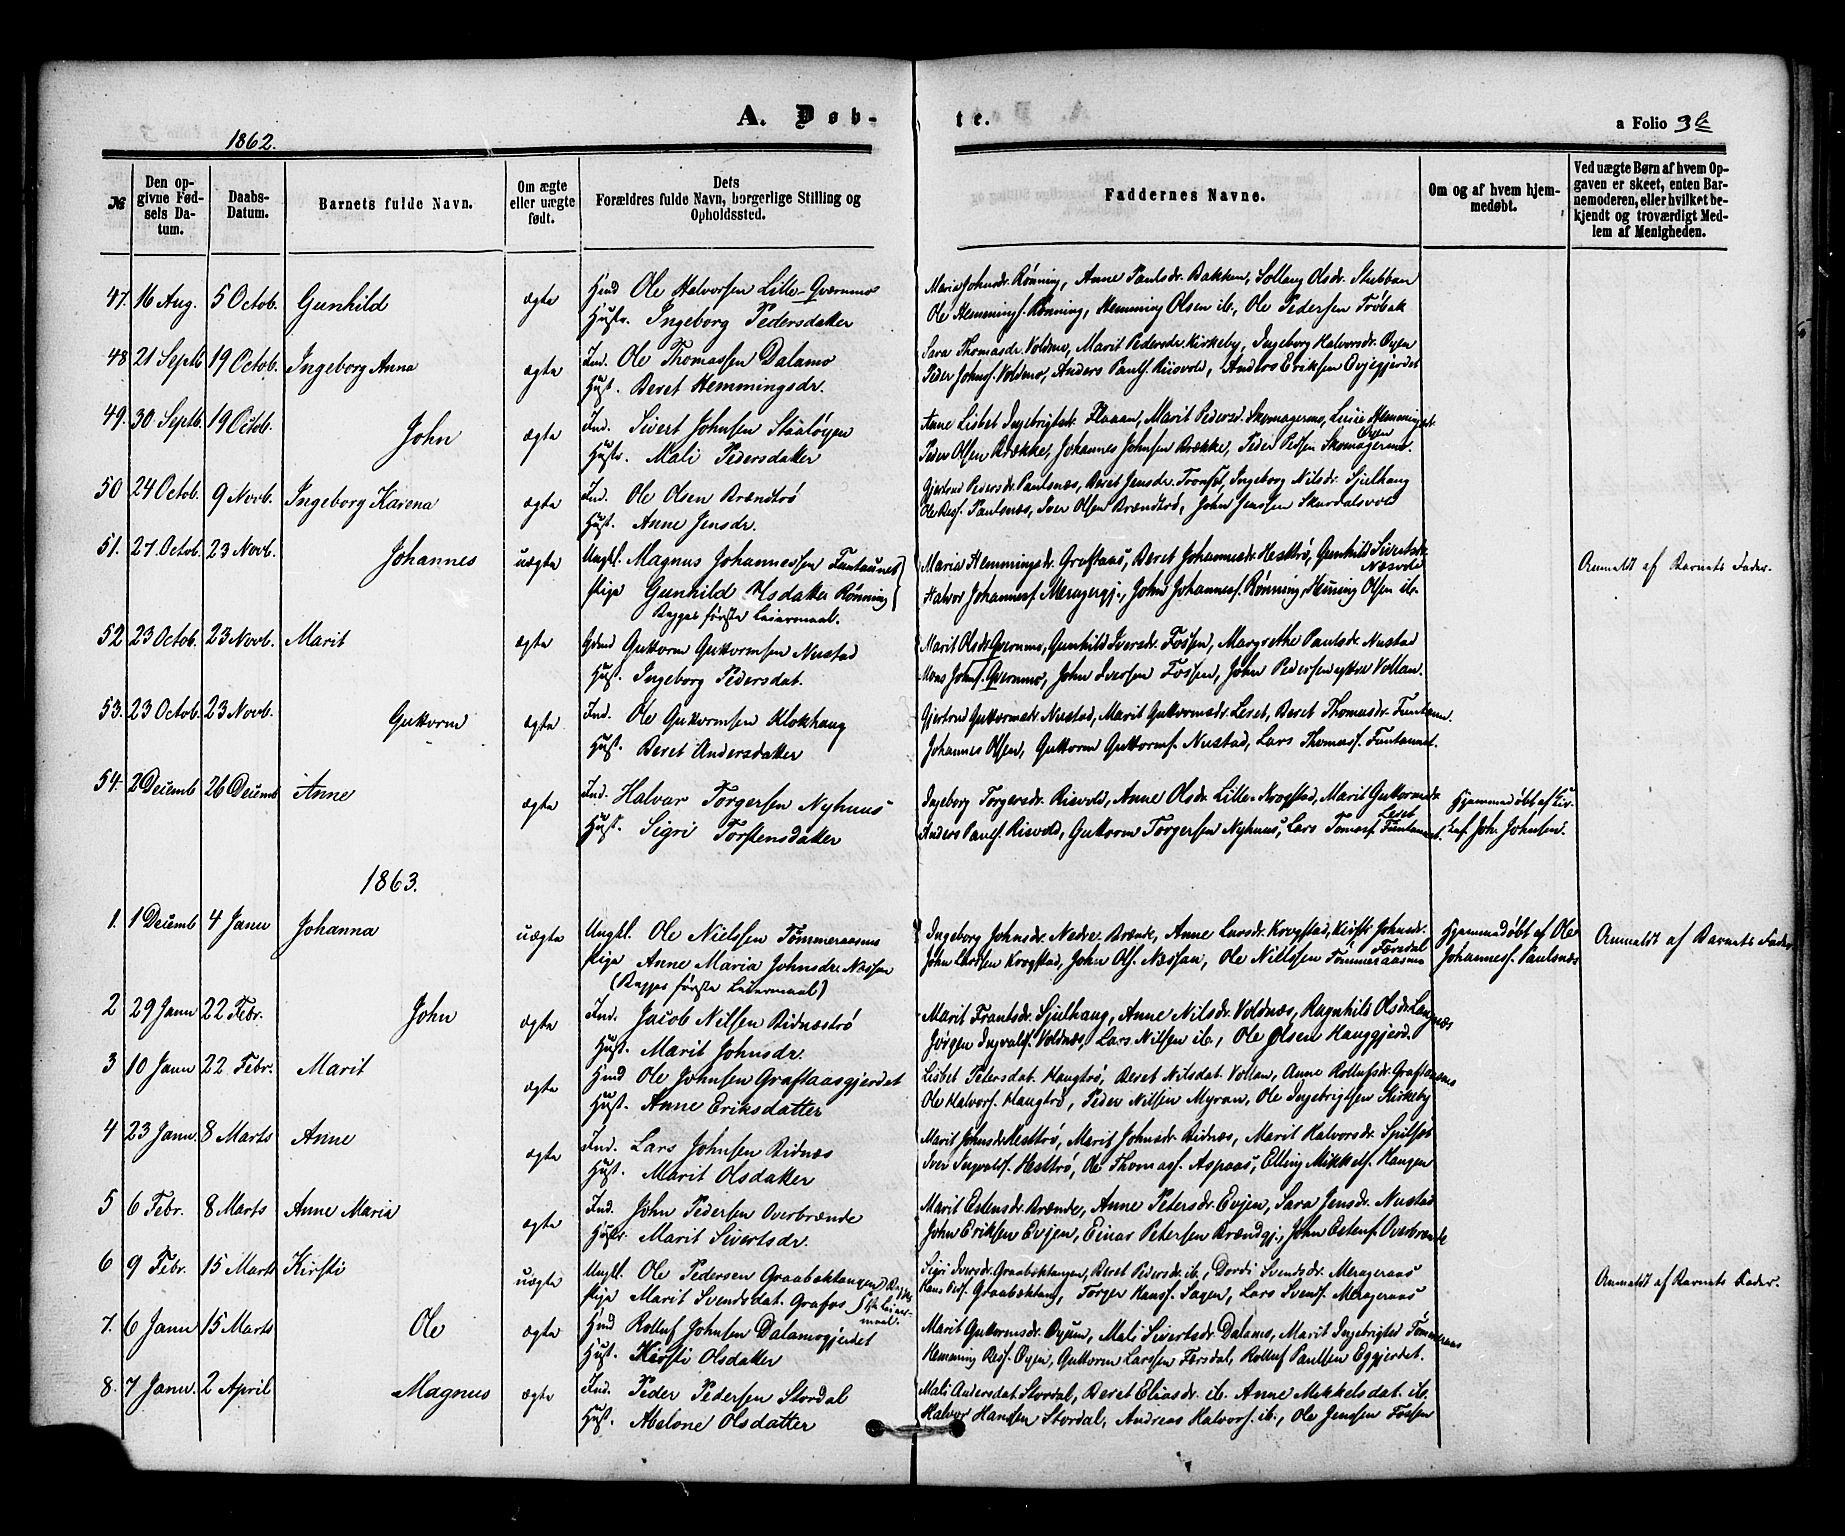 A. Døb-
te.
a Folio 3b
1862.
№
Den opgivne Fødsels Datum.
Daabs-Datum.
Barnets fulde Navn.
Om ægte eller uægte født.
Dets Forældres fulde Navn, borgerlige Stilling og Opholdssted.
Faddernes Navne.
Om og af hvem hjemmedøbt.
Ved uægte Børn af hvem Opgaven er skeet, enten Barnemoderen, eller hvilket bekjendt og troværdigt Medlem af Menigheden.
47. 16 Aug. 5 Octob. Gunhild ægte Hmd Ole Halvorsen Lille-Qvernmo
Hustr. Ingeborg Pedersdatter
Maria Johnsdr. Rønning, Anne Paulsdr. Bakken, Solloug Olsdr. Stubban
Ole Hemmings. Rønning, Hemming Olsen ib., Ole Pedersen Trøbak
48 21 Septb 19 Octob. Ingeborg Anna ægte Ind. Ole Thomassen Dalamo
Hust. Beret Hemmingsdr.
Sara Thomasdr. Voldmo, Marit Pedersdr. Kirkeby, Ingeborg Halvorsdr. Øyen
Peder Johns. Voldmo, Anders Pauls. Riisvold, Anders Eriksen Evjegjerdet
49. 30 Septb. 19 Octob. John ægte Ind. Sivert Johnsen Staaløyen
Hustr. Mali Pedersdatter
Anne Lisbet Ingebrigtsdr. Flaaan, Marit Pedersd. Skomagermo, Lucie Hemmingsdr. Øyen
Peder Olsen Brække, Johannes Johnsen Brække, Peder Pedsen Skomagermo.
50 24 Octob. 9 Novb. Ingeborg Karena ægte Ind. Ole Olsen Brændtrø
Hust. Anne Jensdr.
Gjertrud Pedersdr. Paulsnæs, Beret Jensdr. Tronset, Ingeborg Nilsdr. Sjulhaug
Ole Peds. Paulsnæs, Iver Olsen Brændtrø, John Jensen Skurdalsvold
51. 27 Octob. 23 Novb. Johannes uægte Ungkl. Magnus Johannessen Funtaunet
Pige Gunhild Olsdatter Rønning
Begges første Leiermaal.
Maria Hemmingsdr. Graftaas, Beret Johannesdr. Hesttrø, Gunhild Sivertsdr. Næsvold
Halvor Johanness. Meragergj., John Johanness. Rønning, Heming Olsen ib.
Anmeldt af Barnets Fader.
52 23 Octob. 23 Novb. Marit ægte Gdmd Guttorm Guttormsen Nustad
Hust. Ingeborg Pedersdat.
Marit Olsdr. Qvernmo, Gunhild Iversdr. Fossen, Margrethe Paulsdr. Nustad
Mons Johns. Qvernmo, John Iversen Fossen, John Pedersen ytre Vollan.
53. 23 Octob. 23 Novb. Guttorm ægte Ind. Ole Guttormsen Klokhaug
Hust. Beret Andersdatter
Gjertrud Guttormsdr. Nustad, Marit Guttormsdr. Leret, Beret Thomasdr. Funtaun.
Johannes Olsen, Guttorm Guttorms. Nustad, Lars Thomass. Funtaunet.
54. 2 Decemb 26 Decemb Anne ægte Ind. Halvor Torgersen Nyhuus
Hust. Sigri Torstensdatter
Ingeborg Torgersdr. Risvold, Anne Olsdr. Lille-Krogstad, Marit Guttormsdr. Leret
Anders Pauls. Risvold, Guttorm Torgersen Nyhuus, Lars Tomass. Funtaunet.
Hjemmedøbt af Joh. Johnsen.
1863.
1. 1 Decemb 4 Janu Johanna uægte Ungkl. Ole Nielssen Tømmeraasmo
Pige Anne Maria Johnsdr. Næssen
(Begges første Leiermaal)
Ingeborg Johnsdr. Nedre-Brænde, Anne Larsdr. Krogstad, Kirsti Johnsdr. Færsdal
John Larssen Krogstad, John Ols. Næssan, Ole Nielssen Tømmeraasmo
Hjemmedøbt af Ole Johanness. Paulsnæs
Anmeldt af Barnets Fader
2 29 Janu 22 Febr. John ægte Ind. Jacob Nilsen Bidnæstrø
Hust. Marit Johnsdr.
Marit Frantsdr. Sjulhaug, Anne Nilsdr. Voldnæs, Ragnhild Olsdr. Langnæs
Jørgen Ingvals. Voldnæs, Lars Nilsen ib., Ole Olsen Hauggjerd.
3 10 Janu 22 Febr. Marit ægte Hmd Ole Johnsen Graftaasgjerdet
Hust. Anne Eriksdatter
Lisbet Petersdat. Haugtrø, Beret Nilsdat. Vollan, Anne Rollufsdr. Graftaasmo
Ole Halvors. Haugtrø, Peder Nilsen Myran, Ole Ingebrigtsen Kirkeby
4 23 Janu. 8 Marts Anne ægte Ind. Lars Johnsen Bidnæs
Hust. Marit Olsdatter
Marit Johnsdr. Hesttrø, Marit Johnsdr. Bidnæs, Marit Halvorsdr. Spilset
Iver Ingvals. Hesttrø, Ole Thomass. Aspaas, Elling Mikkels. Haugen
5 6 Febr. 8 Marts Anne Maria ægte Ind. John Pedersen Overbrænde
Hustr. Marit Sivertsdr.
Marit Estensdr. Brænde, Anne Petersdr. Evjen, Sara Jensdr. Nustad
John Eriksen Evjen, Einar Petersen Brændgj., John Estens. Overbrænde
6 9 Febr. 15 Marts Kirsti uægte Ungkl. Ole Pedersen Graabæktangen
Pige Marit Svendsdat. Grafos
Begges 1ste Leiermaal.
Sigri Iversdr. Graabæktangen, Beret Pedersdr. ib., Dordi Svendsdr. Merageraas
Hans Peds. Graabæktang, Torger Hans. Sagen, Lars Svens. Merageraas
Anmeldt af Barnets Fader.
7. 6 Janu 15 Marts Ole ægte Hmd Rolluf Johnsen Dalamogjerdet
Hust. Kirsti Olsdatter
Marit Guttormsdr. Øyum, Mali Sivertsdr. Dalamo, Marit Ingebrigtsd Tømmeraas
Hemming Peds. Øyen, Guttorm Larssen Færsdal, Rolluf Paulsen Eggjerdet.
8. 7 Janu. 2 April Magnus ægte Ind. Peder Pedersen Stordal
Hust. Abelone Olsdatter
Mali Andersdat. Stordal, Beret Eliasdr. ib. Anne Mikkelsdat. ib.
Halvor Hansen Stordal, Andreas Halvors. ib., Ole Jensen Fossen